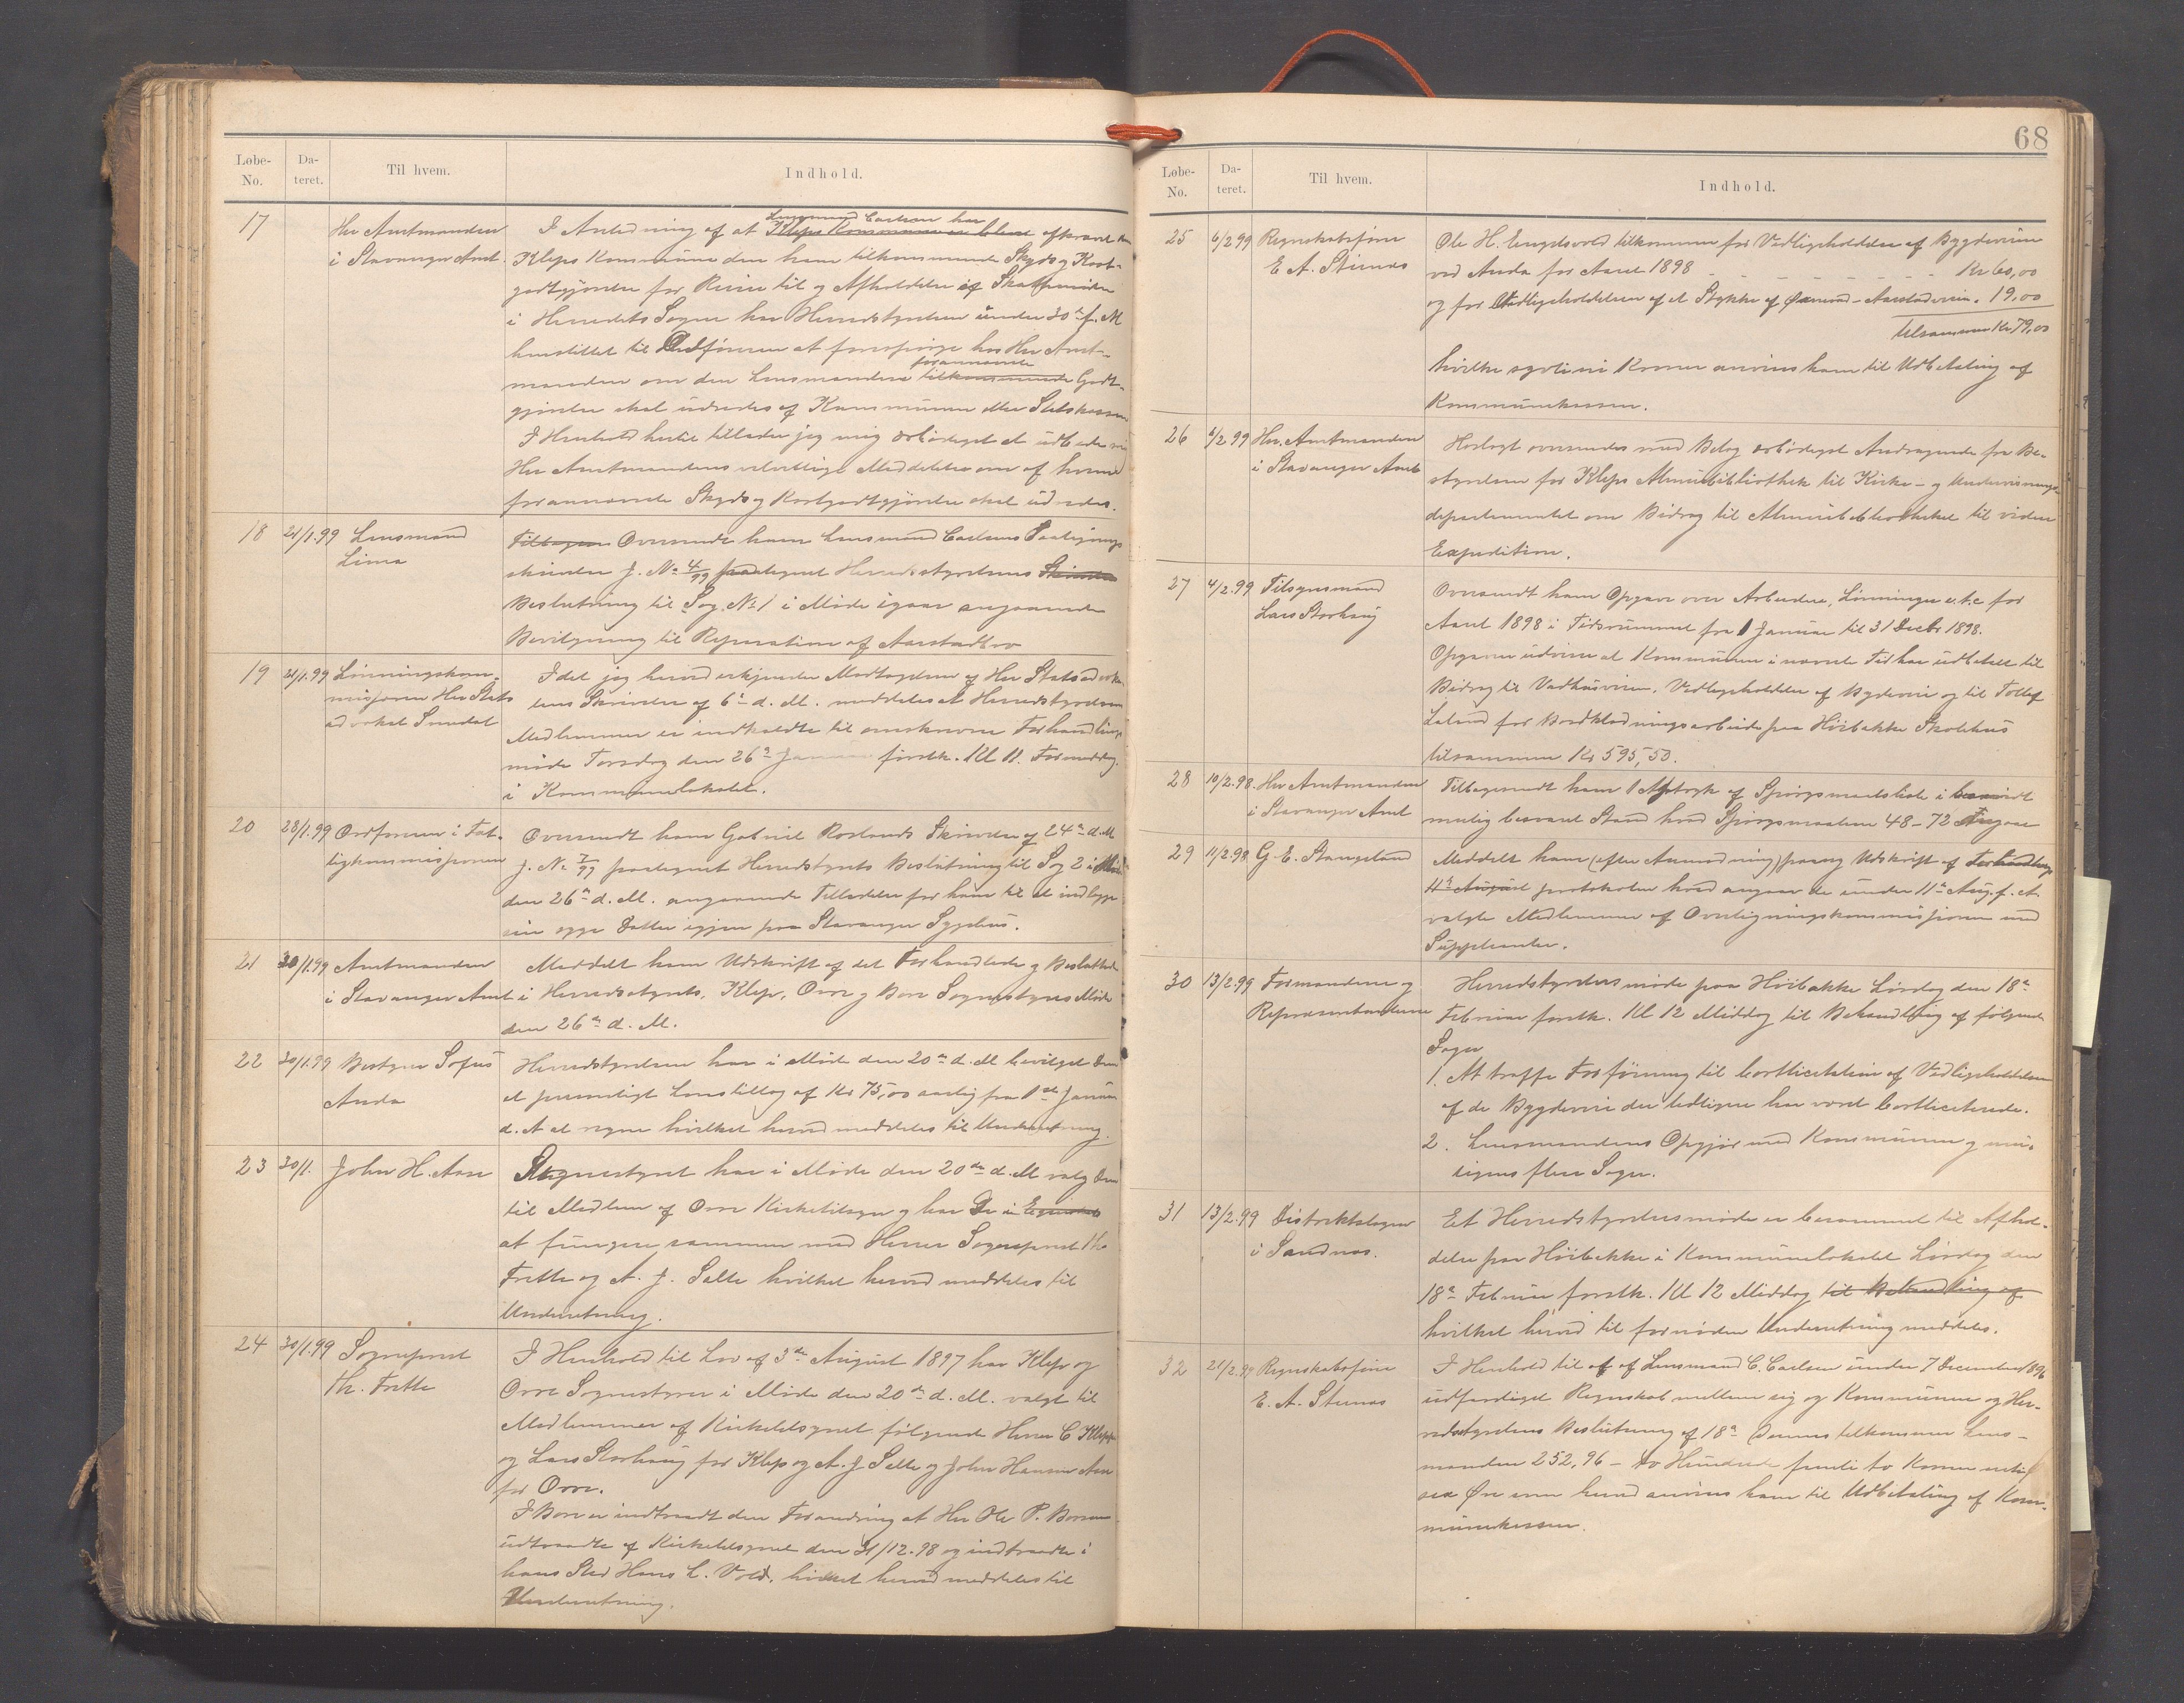 Løbe-No. Da-teret. Til hvem. Indhold.
17 Herr Amtmanden i Stavanger Amt.
I Anledning af at Kleps Kommune er bleven Lensmand Carlsen har afkrævet
Kleps Kommune den ham tilkommende Skyds og Kost-
godtgjørelse for Reise til og Afholdelse af Skattemøder
i Herredets Sogne har Herredstyrelsen under 30te f. M
henstillet til Ordføreren at forespørge hos Herr Amt-
manden om den Lensmanden tilkommende forannævnte Godt-
gjørelse skal udredes af Kommunen eller Statskassen
I Henhold hertil tillader jeg mig ærbødigst at udbede mig
Herr Amtmandens velvillige Meddelelse om af hvem
forannævnte Skyds og Kostgodtgjørelse skal udredes.
18 21/1.99 Lensmand Lima
Tilbagesen Oversendt ham Lensmand Carlsens
skrivelse J. No 4/99 paategnet Herredsstyrelsens Skrivelse
Beslutning til Sag No 1 i Møde igaar angaaende
Bevilgning til Reparation af Aarstadbro
19 21/1.99 Lønningskom-
missjonen Herr Stats
advokat Smedal
Idet jeg herved erkjender Modtagelsen af Herr Statsadvoka-
tens Skrivelse af 6te d. M. meddeles at Herredstyrelsens
Medlemmer er indkaldte til omskrevne Forhandlings
møde Torsdag den 26de Januar førstk. Kl 11. Formiddag.
i Kommunelokalet.
20 28/1.99 Ordføreren i Fat-
tigkommissjonen
Oversendt ham Gabriel Roslands Skrivelse af 24de d. M
J. No 7/99 paategnet Herredstyrets Beslutning til Sag 2 i Møde
den 26de d. M. angaaende Tilladelse for ham til at indlægge
sin syge Datter igjen paa Stavanger Sygehus.
21 30/1.99 Amtmanden
i Stavanger Amt
Meddelt ham Udskrift af det Forhandlede og Besluttede
i Herredsstyrets, Klep, Orre og Bore Sognestyres Møde
den 26de d. M.
22 30/1.99 Bestyrer Sofus
Anda
Herredstyrelsen har i Møde den 20de d. M bevilget Dem
et personligt Lønstillæg af Kr 75,00 aarlig fra 1ste Januar
d. A at regne hvilket herved meddeles til Underretning.
23 30/1. John H. Aase
Sognestyret har i Møde den 20de d. M valg Dem
til Medlem af Orre Kirketilsyn og har De i Egenskab
at fungere sammen med Herrer Sogneprest Th.
Frette og A. J. Salte hvilket herved meddeles til
Underretning.
24 30/1.99 Sogneprest
Th. Frette
I Henhold til Lov af 3die August 1897 har Klep og
Orre Sognestyrer i Møde den 20de d. M. valgt til
Medlemmer af Kirketilsynet følgende Herrer C Kleppe
og Lars Storhaug for Klep og A. J Salte og John Hansen Aase
for Orre.
I Bore er indtraadt den Forandring at Herr Ole P. Borsen
udtraadte af Kirketilsynet den 31/12.98 og indtraadte i
hans Sted Hans L. Vold, hvilket herved meddeles til
Underretning.
68
Løbe-No. Da-teret. Til hvem. Indhold.
25 6/2 99 Regnskabsfører
E A. Stirnæs
Ole H. Engelsvold tilkommer for Vedligeholdelse af Bygdeveien
ved Anda for Aaret 1898 - - - - - - - - - Kr 60,00
og for Vedligeholdelsen af et Stykke af -Aarstadveien. 19,00
Tilsammen Kr 79,00
hvilke sytti ni Kroner anvises ham til Udbetaling af
Kommunekassen.
26 6/2 99 Herr. Amtmanden
i Stavanger Amt
Hoslagt oversendes med Bilag ærbødigst Andragende fra Be-
styrelsen for Kleps Almuebibliothek til Kirke- og Undervisnings-
departementet om Bidrag til Almuebibliotheket til videre
Expedition.
27 4/2.99 Tilsynsmand
Lars Storhaug
Oversendt ham Opgave over Arbeidere, Lønninger e.t.c for
Aaret 1898 i Tidsrummet fra 1 Januar til 31 Decbr 1898.
Opgaven udviser at Kommunen i nævnte Tid har udbetalt til
Bidrag til Vadhusveien, Vedligeholdelse af Bygdeveie og til Tollef
Laland for Bordklædningsarbeide paa Høibakke Skolehus
tilsammen Kr 595,50.
28 10/2.98. Herr Amtmanden
i Stavanger Amt
Tilbagesendt ham 1 Aftryk af Spørgsmaalsliste i
mulig besvaret Stand hvad Spørgsmaalene 48-72 Angaar
29 11/2.98 G. E. Stangeland
Meddelt ham (efter Anmodning) paany Udskrift af Forhandlings
11te August protokolen hvad angaar de under 11te Aug. f. A.
valgte Medlemmer af Overligningskommissjonen med
Suppleanter.
30 13/2.99 Formændene og
Repræsentanterne
Herredstyrelsesmøde paa Høibakke Lørdag den 18de
Februar førstk. Kl 12 Middag til Behandling af følgende
Sager
1. At træffe Forføining til Bortlicitation af Vedligeholdelsen
af de Bygdeveie der tidligere har været bortliciterede.
2. Lensmandens Opgjør med Kommunen og mu-
ligens flere Sager.
31 13/2.99 Distriktslægen
i Sandnæs.
Et Herredstyrelsesmøde er berammet til Afhol-
delse paa Høibakke i Kommunelokalet Lørdag den
18de Februar førstk. Kl 12 Middag til Behandling af
hvilket herved til fornøden Underretning meddeles.
32 21/2.99 Regnskabsfører
E. A. Stirnæs
I Henhold til af af Lensmand C. Carlsen under 7 December 1896
udfærdiget Regnskab mellem sig og Kommunen og Her-
redsstyrelsens Beslutning af 18de dennes tilkommer Lens-
manden 252,96 - to Hundrede femti to Kroner niti
sex Øre som herved anvises ham til Udbetaling af Kom-
munekassen.